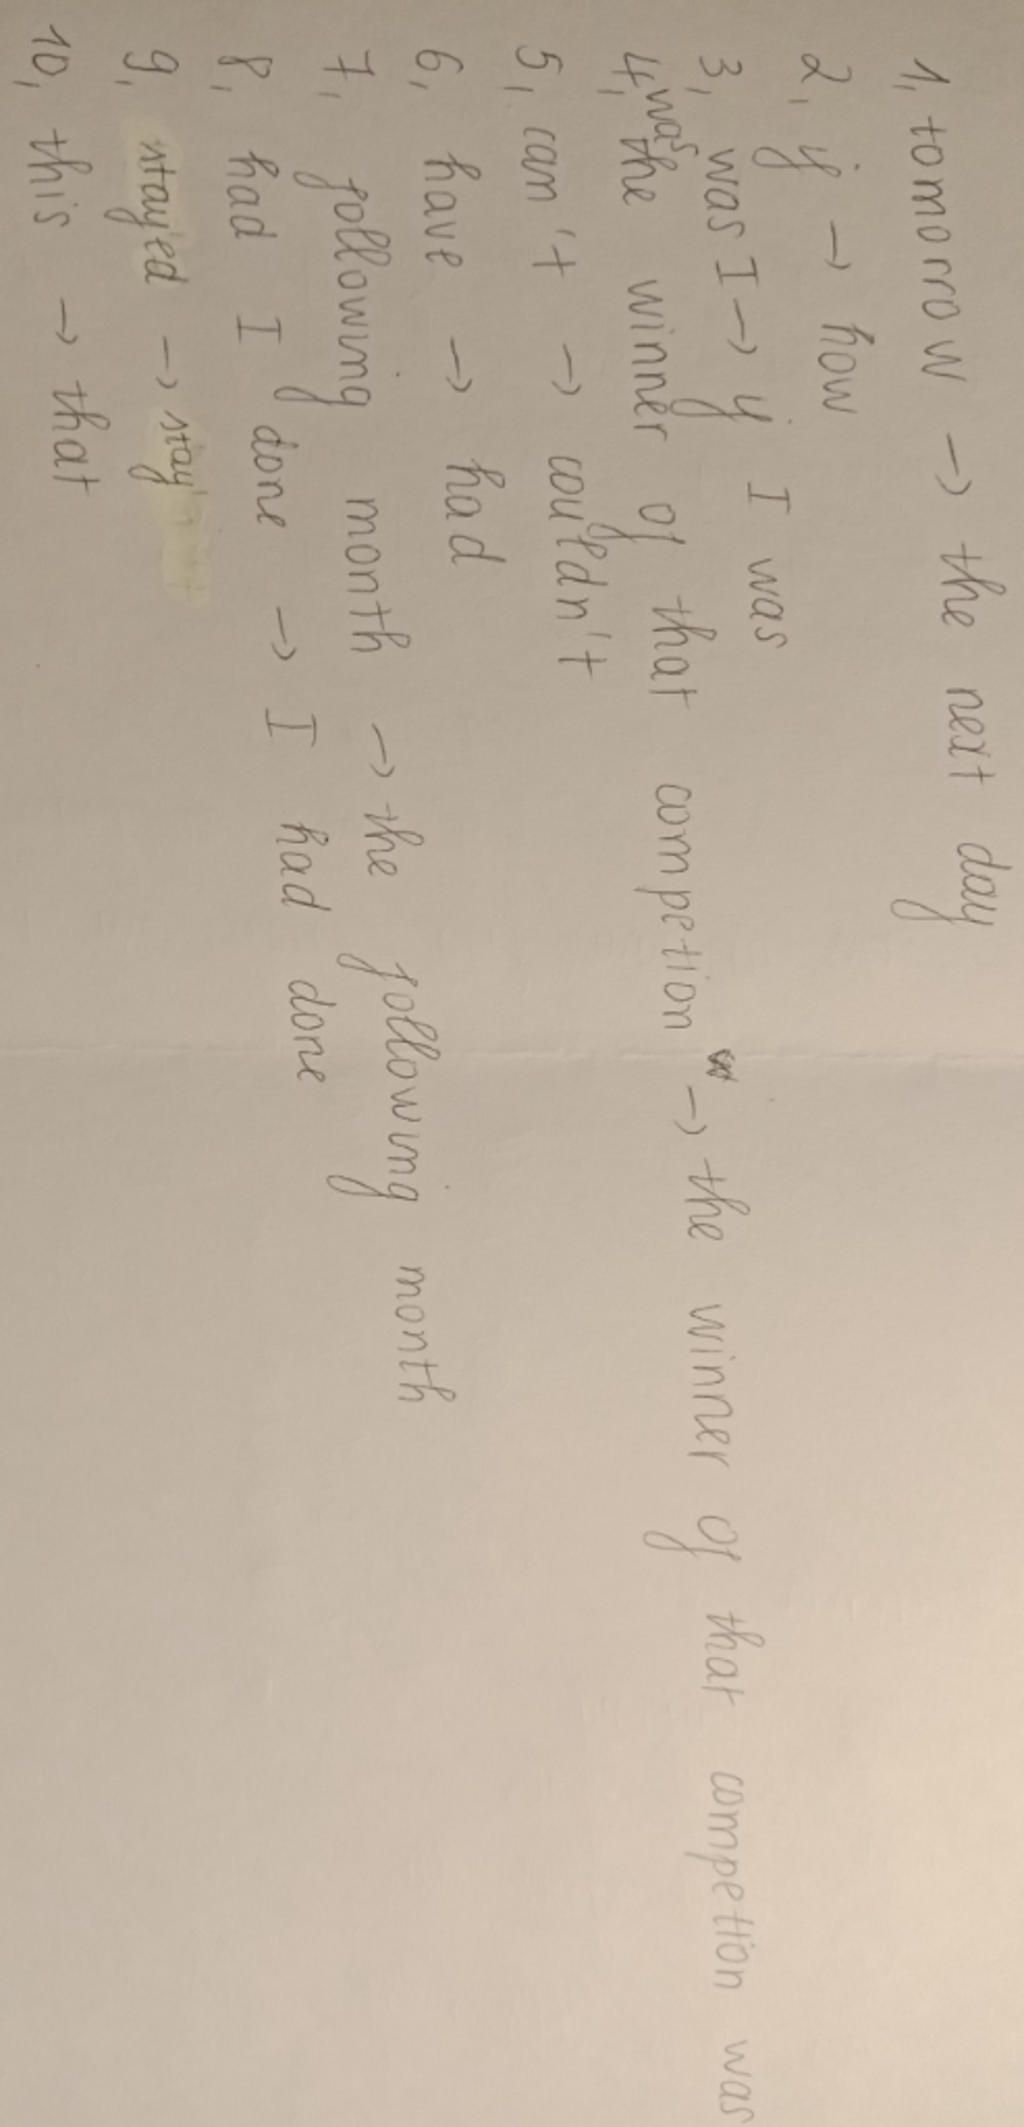 1, tomorrow → the next day
2, if → how
3, was I → if I was
4, was the winner of that competion → the winner of that competion was
5, can't → couldn't
6, have → had
7, following month → the following month
8, had I done → I had done
9, stay'ed → stay
10, this → that